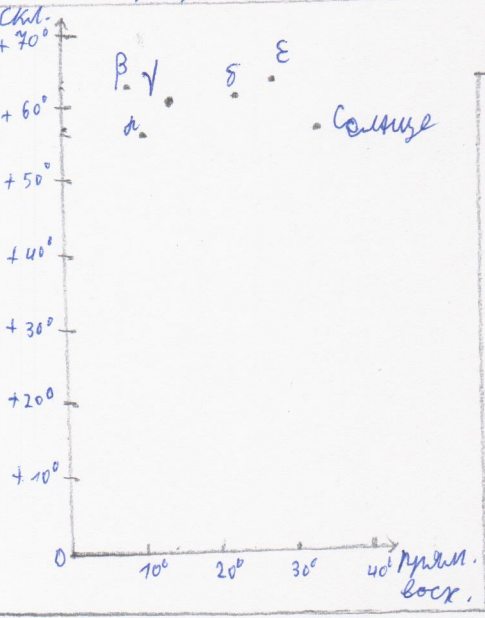 Скл.
+ 70°
β γ δ ε
+ 60°
α
Солнце
+ 50°
+ 40°
+ 30°
+ 20°
+ 10°
0
10° 20° 30° 40° Прям.
восх.